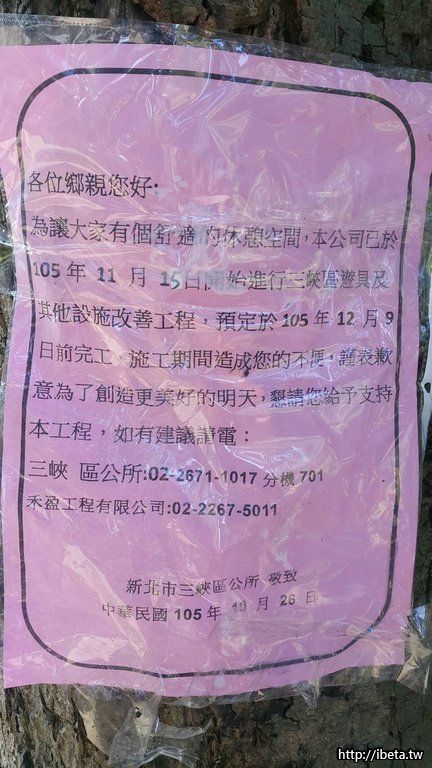 各位鄉親您好:
為讓大家有個舒適的休憩空間，本公司已於
105 年 11 月 15日開始進行三峽區遊具及
其他設施改善工程，預定於 105 年 12 月 9
日前完工，施工期間造成您的不便，謹表歉
意為了創造更美好的明天，懇請您給予支持
本工程，如有建議請電：
三峽 區公所:02-2671-1017 分機 701
禾盈工程有限公司:02-2267-5011
新北市三峽區公所 敬致
中華民國 105 年 10 月 26 日
http://ibeta.tw